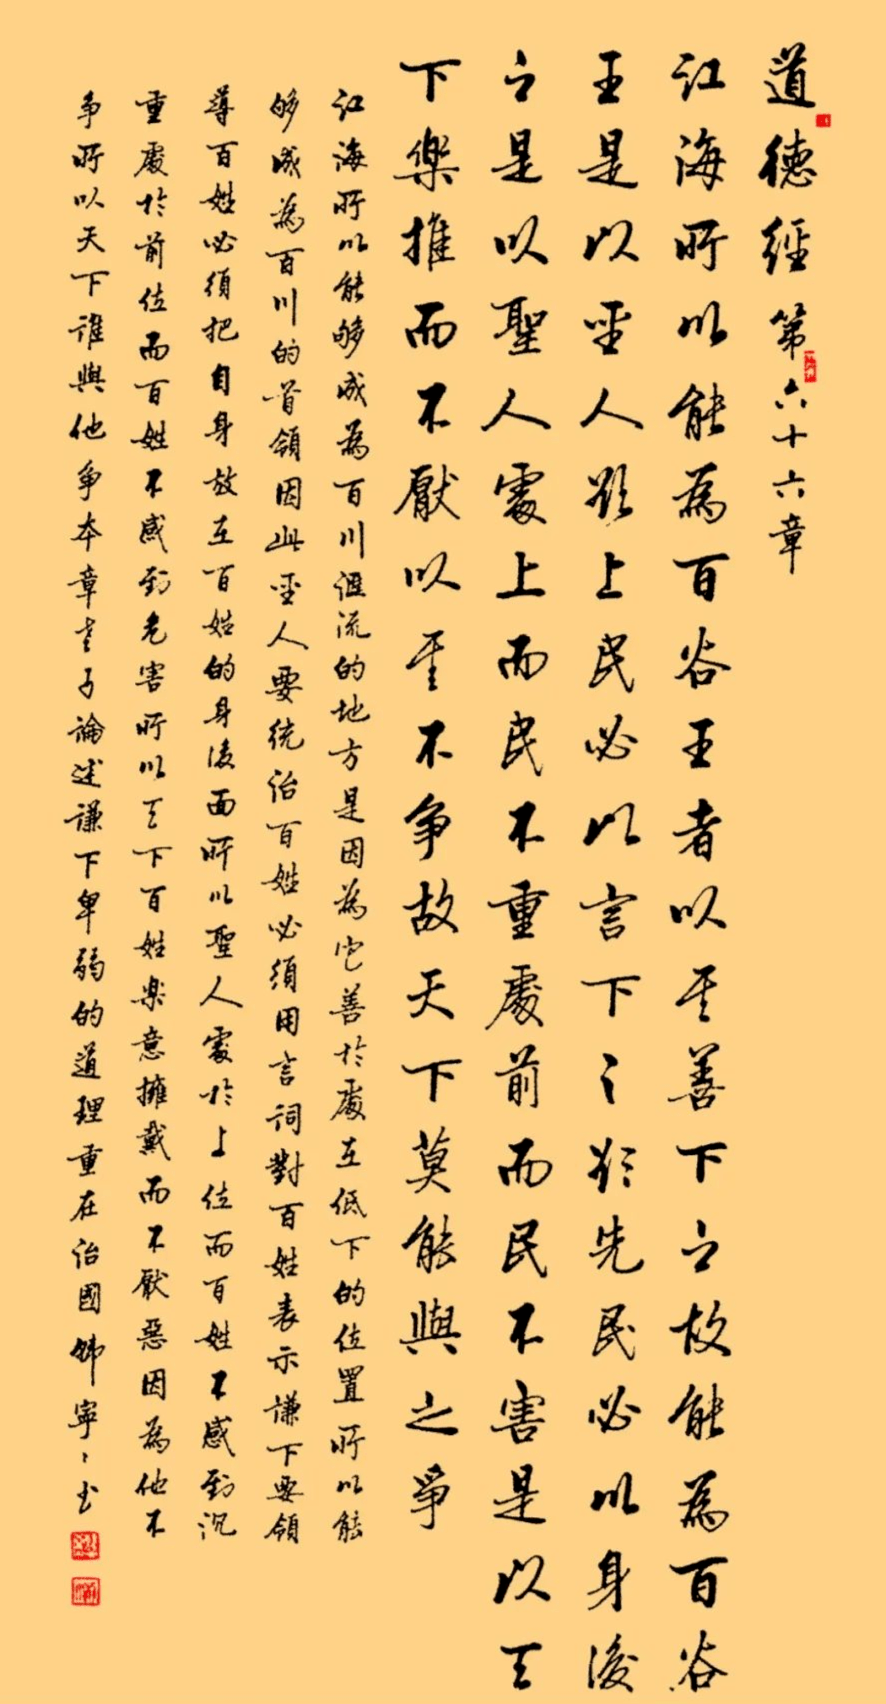 道德經第六十六章
江海所以能為百谷王者以其善下之故能為百谷
王是以聖人欲上民必以言下之欲先民必以身後
之是以聖人處上而民不重處前而民不害是以天
下樂推而不厭以其不争故天下莫能與之爭
江海所以能够成為百川匯流的地方是因為它善於處在低下的位置所以能
够成為百川的首領因此聖人要統治百姓必須用言詞對百姓表示謙下要領
導百姓必須把自身放在百姓的身後面所以聖人處於上位而百姓不感到沉
重處於前位而百姓不感到危害所以天下百姓樂意擁戴而不厭惡因為他不
争所以天下誰與他争本章老子論述謙下卑弱的道理重在治國韓寧寧书